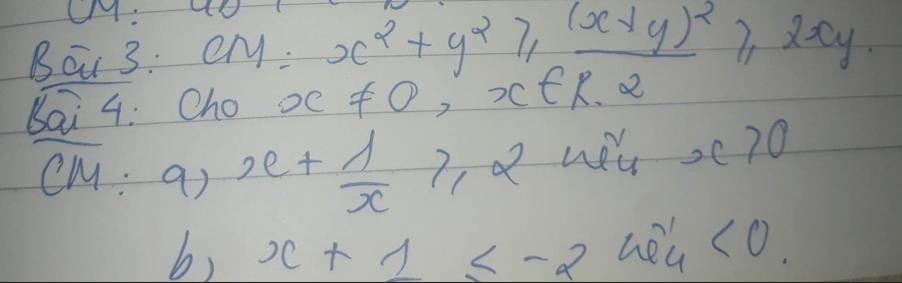 CM:
Bài 3: CM: x² + y² ≥ (x+y)²/2 ≥ 2xy.
Bài 4: Cho x ≠ 0, x ∈ R.
CM: a, x + 1/x ≥ 2 nếu x > 0
b, x + 1 ≤ -2 nếu < 0.